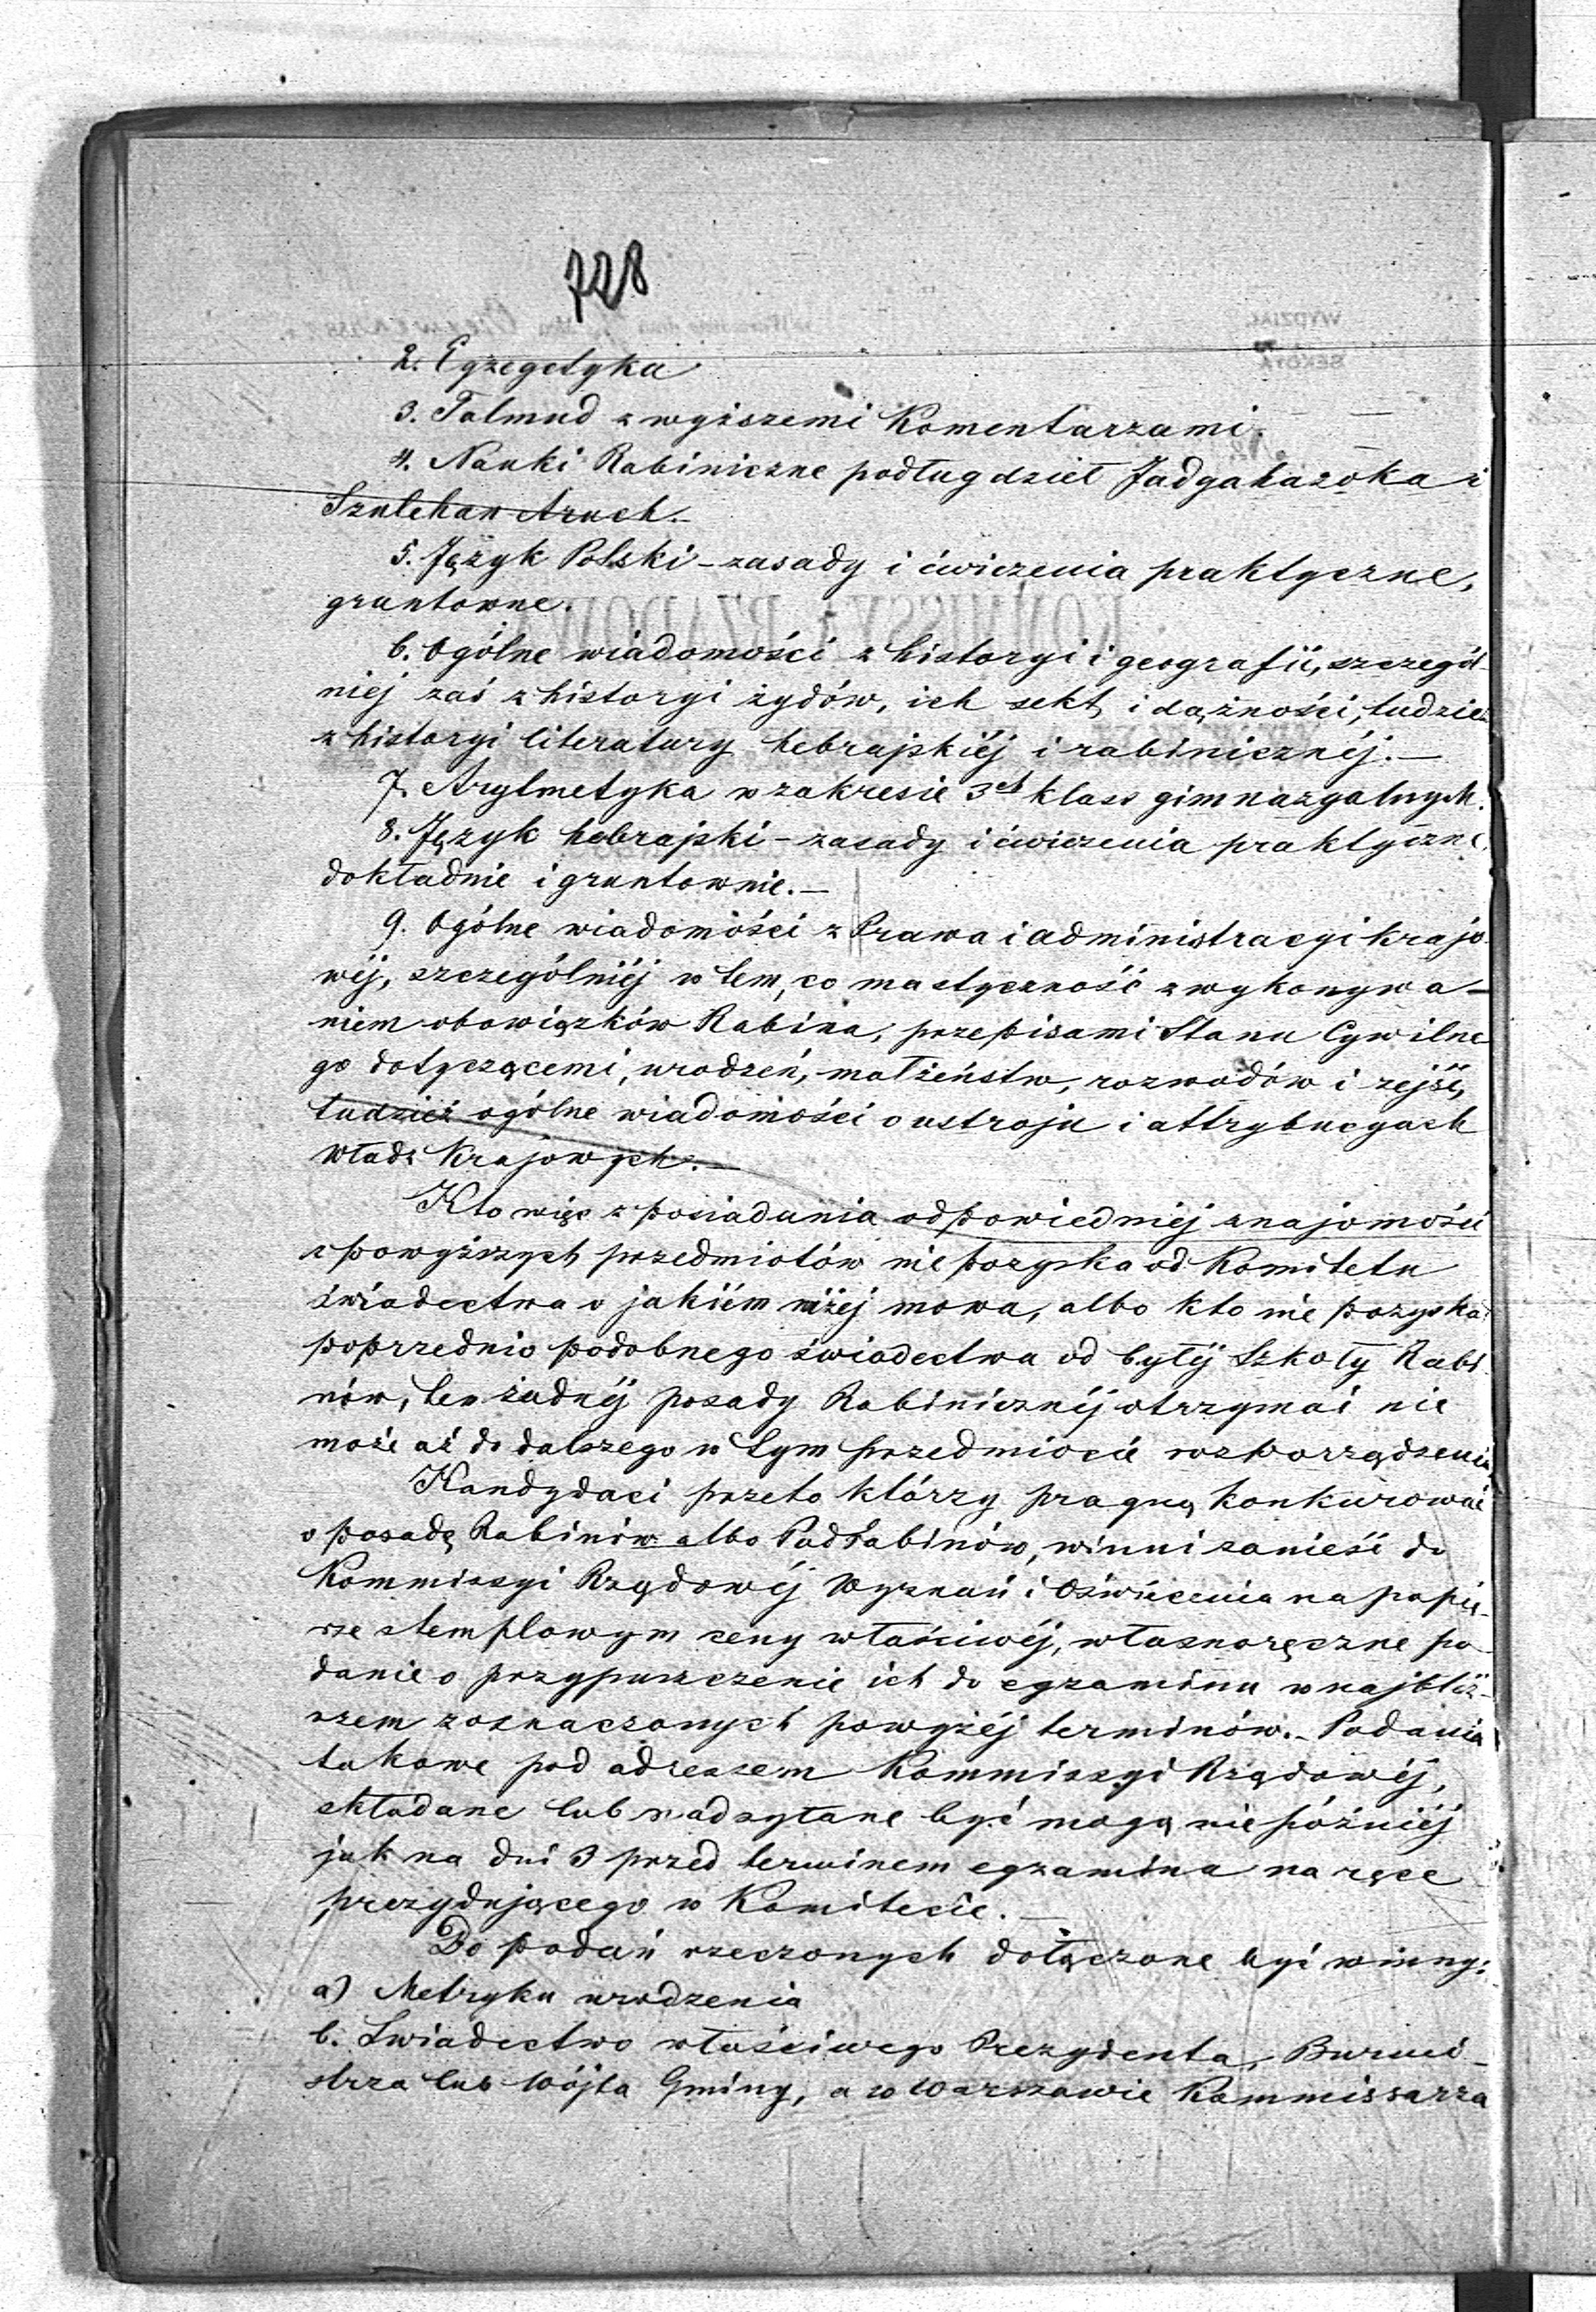 728
2. Egzegetyka
3. Talmud z wyższemi Komentarzami.
4. Nauki Rabiniczne podług dzieł Jadgahazoka i
Szulchan Aruch.-
5. Język Polski - zasady i ćwiczenia praktyczne,
gruntowne.
6. Ogólne wiadomości z historyi i geografii, szczegól-
niej zaś z historyi żydów, ich sekt, i dążności, tudzież
z historyi literatury hebrajskiéj i rabinicznéj.-
7. Arytmetyka w zakresie 3ch klass gimnazyalnych.
8. Język hebrajski - zasady i ćwiczenia praktyczne,
dokładnie i gruntownie.-
9. Ogólne wiadomości z Prawa i administracyi krajo-
wéj, szczególniéj w tem, co ma styczność z wykonywa-
niem obowiązków Rabina, przepisami Stanu Cywilne
go dotyczącemi, urodzeń, małżeństw, rozwodów i zejść,
tudzież ogólne wiadomości o ustroju i attrybucyach
władz Krajowych.-
Kto więc z posiadania odpowiedniéj znajomości
z powyższych przedmiotów nie pozyska od Komitetu
świadectwa o jakiém niżej mowa, albo kto nie pozyskał
poprzednio podobnego świadectwa od byłéj Szkoły Rabi-
nów, ten żadnéj posady Rabinicznéj otrzymać nie
może aż do dalszego w tym przedmiocie rozporządzenia
Kandydaci przeto którzy pragną konkurować
o posadę Rabinów albo Podrabinów, winni zanieść do
Kommissyi Rządowéj Wyznań i Oświécenia na papie-
rze stemplowym ceny właściwéj, własnoręczne po-
danie o przypuszczenie ich do egzaminu w najbliż-
szem z oznaczonych powyżéj terminów.- Podania
takowe pod adressem Kommissyi Rządowéj,
składane lub nadsyłane być mogą nie późniéj
jak na dni 3 przed terminem egzamina na ręce
prezydującego w Komitecie.-
Do podań rzeczonych dołączone być winny:
a) Metryka urodzenia
b. Świadectwo właściwego Prezydenta, Burmi-
strza lub Wójta Gminy, a w Warszawie Kommissarza